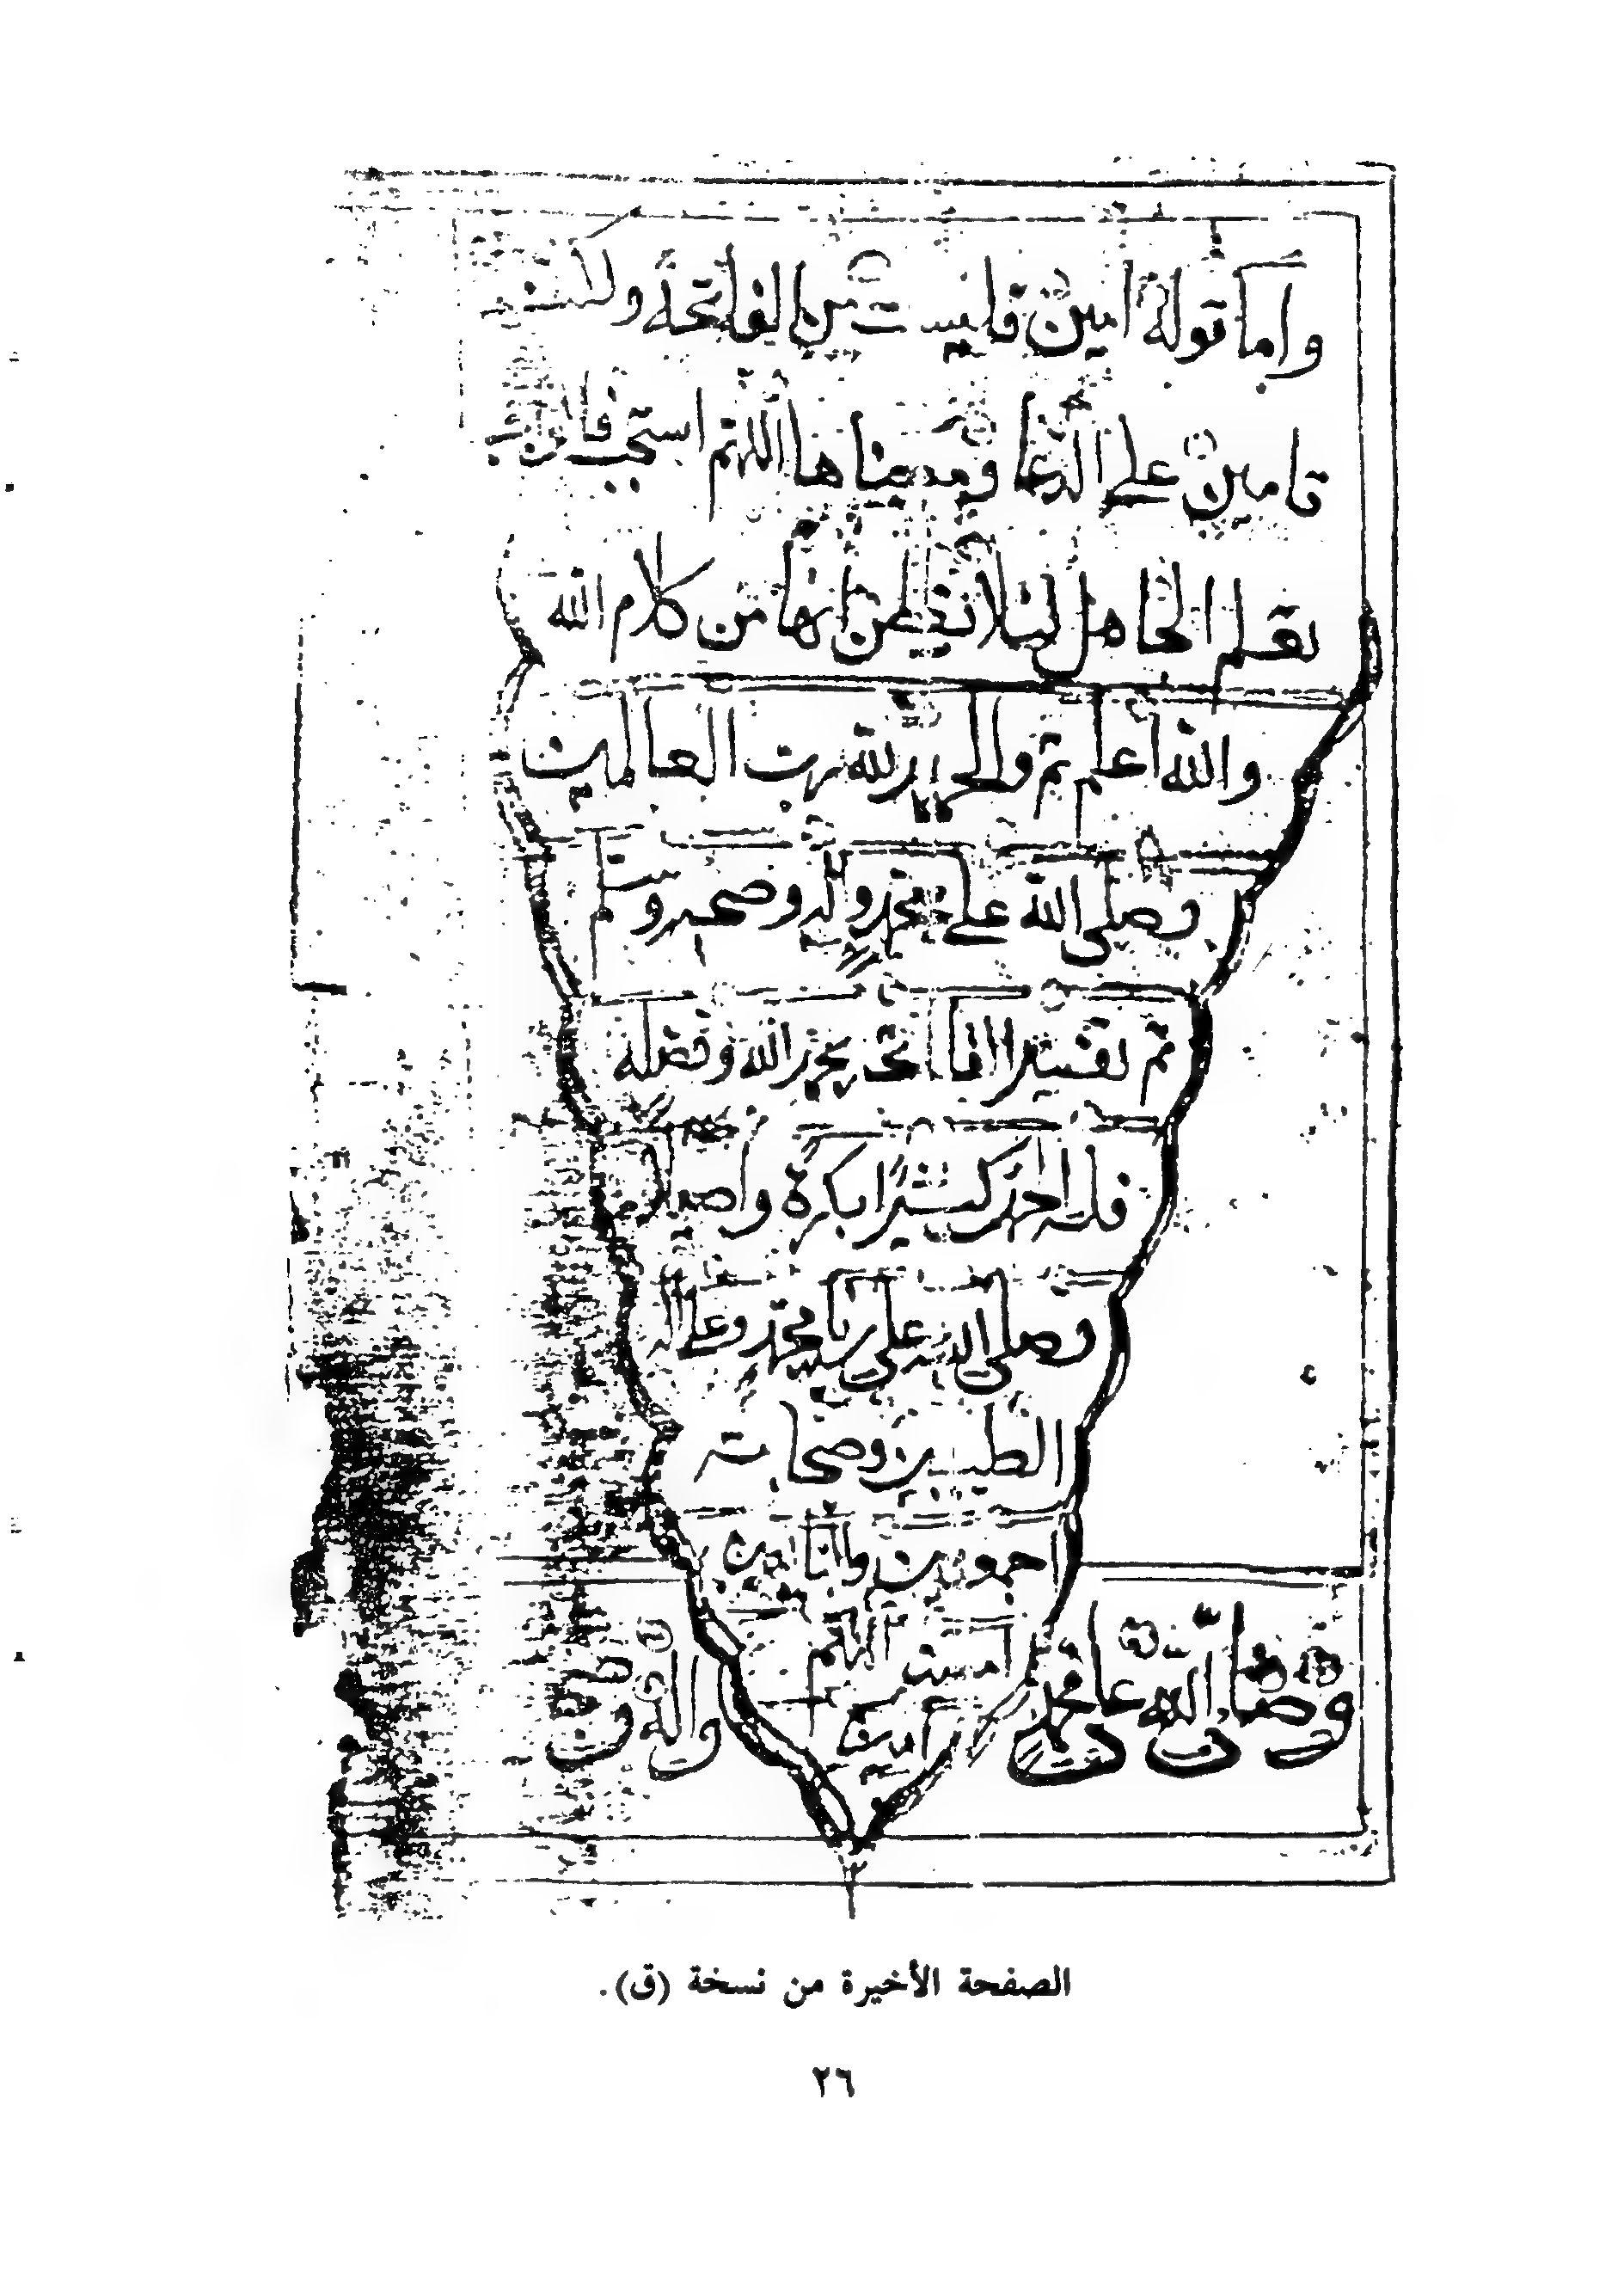 وأما قوله امين فليست من الفاتحة ولكنـ
تامين على الدعا ومعناها اللهم استجب
يعلم الجاهل ليلا يظن انها من كلام الله
والله أعلم تم والحمد لله رب العالمين
وصلى الله على محمد واله وصحبه وسلم
تم تفسير الفاتحة بحمد الله وفضله
فله احمد كثيرا بكرة واصيلا
وصلى الله على سيدنا محمد وعلى اله
الطيبين وصحابته
اجمعين والتابعين
امين اللهم
امين
وصلى الله على محمد واله
الصفحة الأخيرة من نسخة (ق).
٢٦